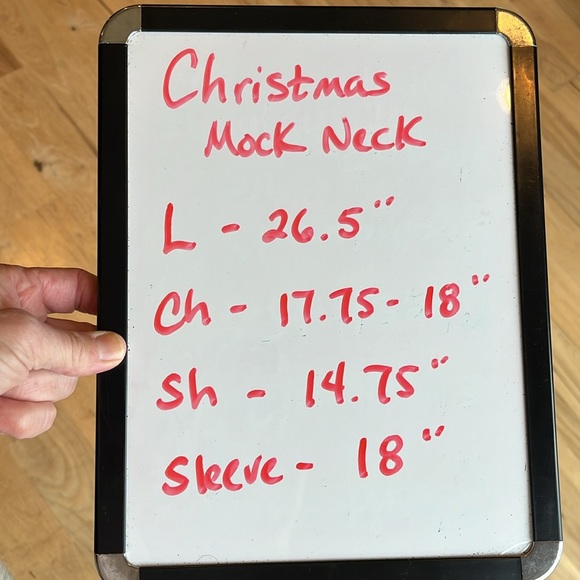 Christmas
Mock Neck
L - 26.5"
Ch - 17.75 - 18"
Sh - 14.75"
Sleeve - 18"